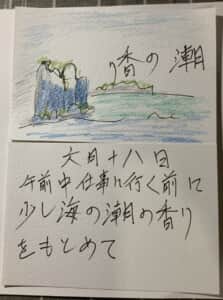 潮の香り
六月十八日
午前中仕事に行く前に
少し海の潮の香り
をもとめて